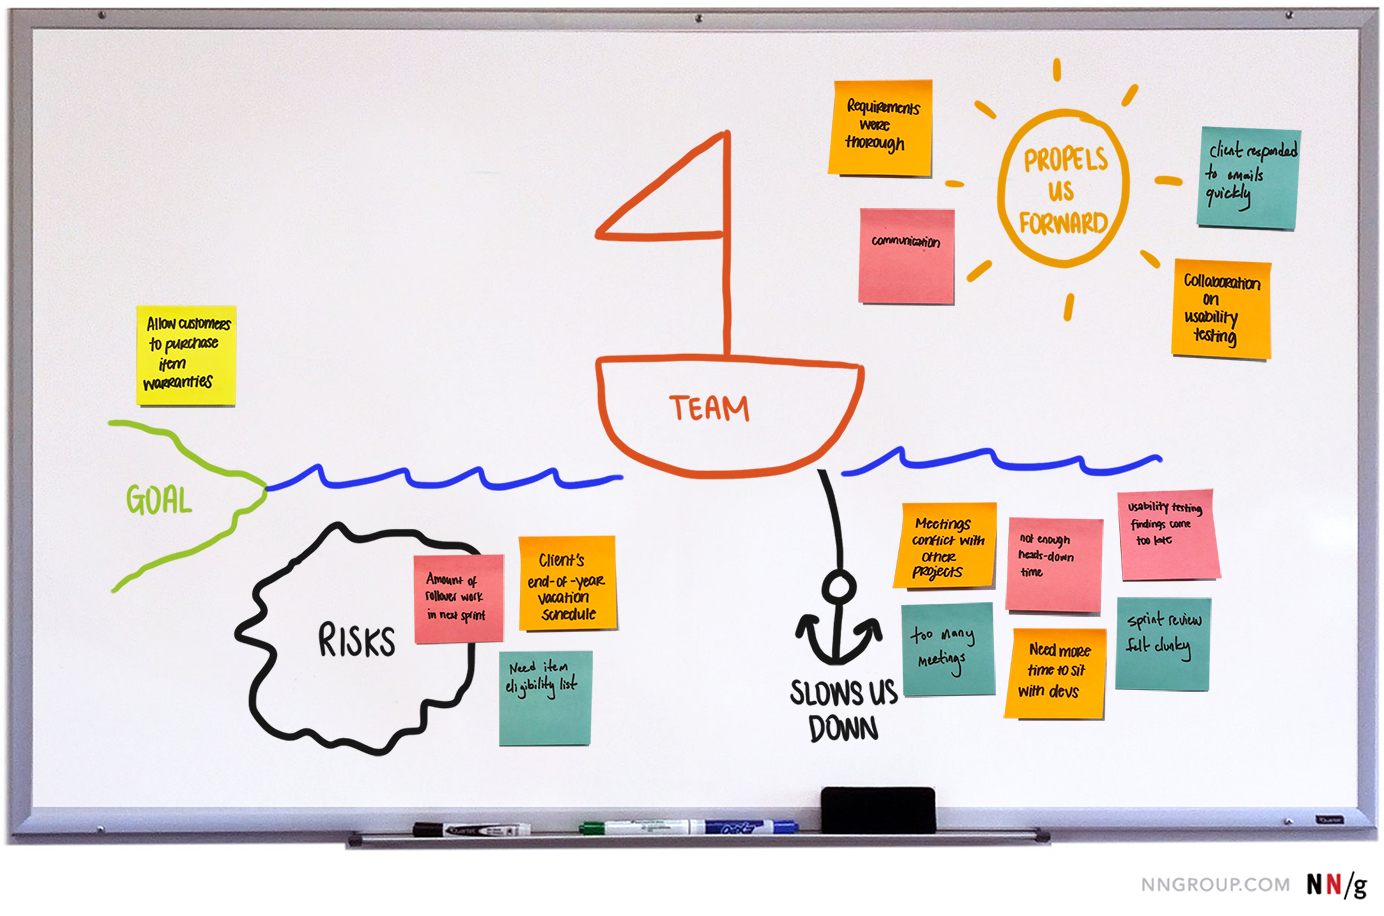 Requirements
were
thorough
PROPELS
US
FORWARD
Client responded
to emails
quickly
communication
Collaboration
on
usability
testing
Allow customers
to purchase
item
warranties
TEAM
GOAL
RISKS
Amount of
rollover work
in next sprint
Client's
end-of-year
vacation
schedule
Need item
eligibility list
SLOWS US
DOWN
Meetings
conflict with
other
projects
not enough
heads-down
time
usability testing
findings come
too late
too many
meetings
Need more
time to sit
with devs
sprint review
felt clunky
Quartet
NNGROUP.COM NN/g